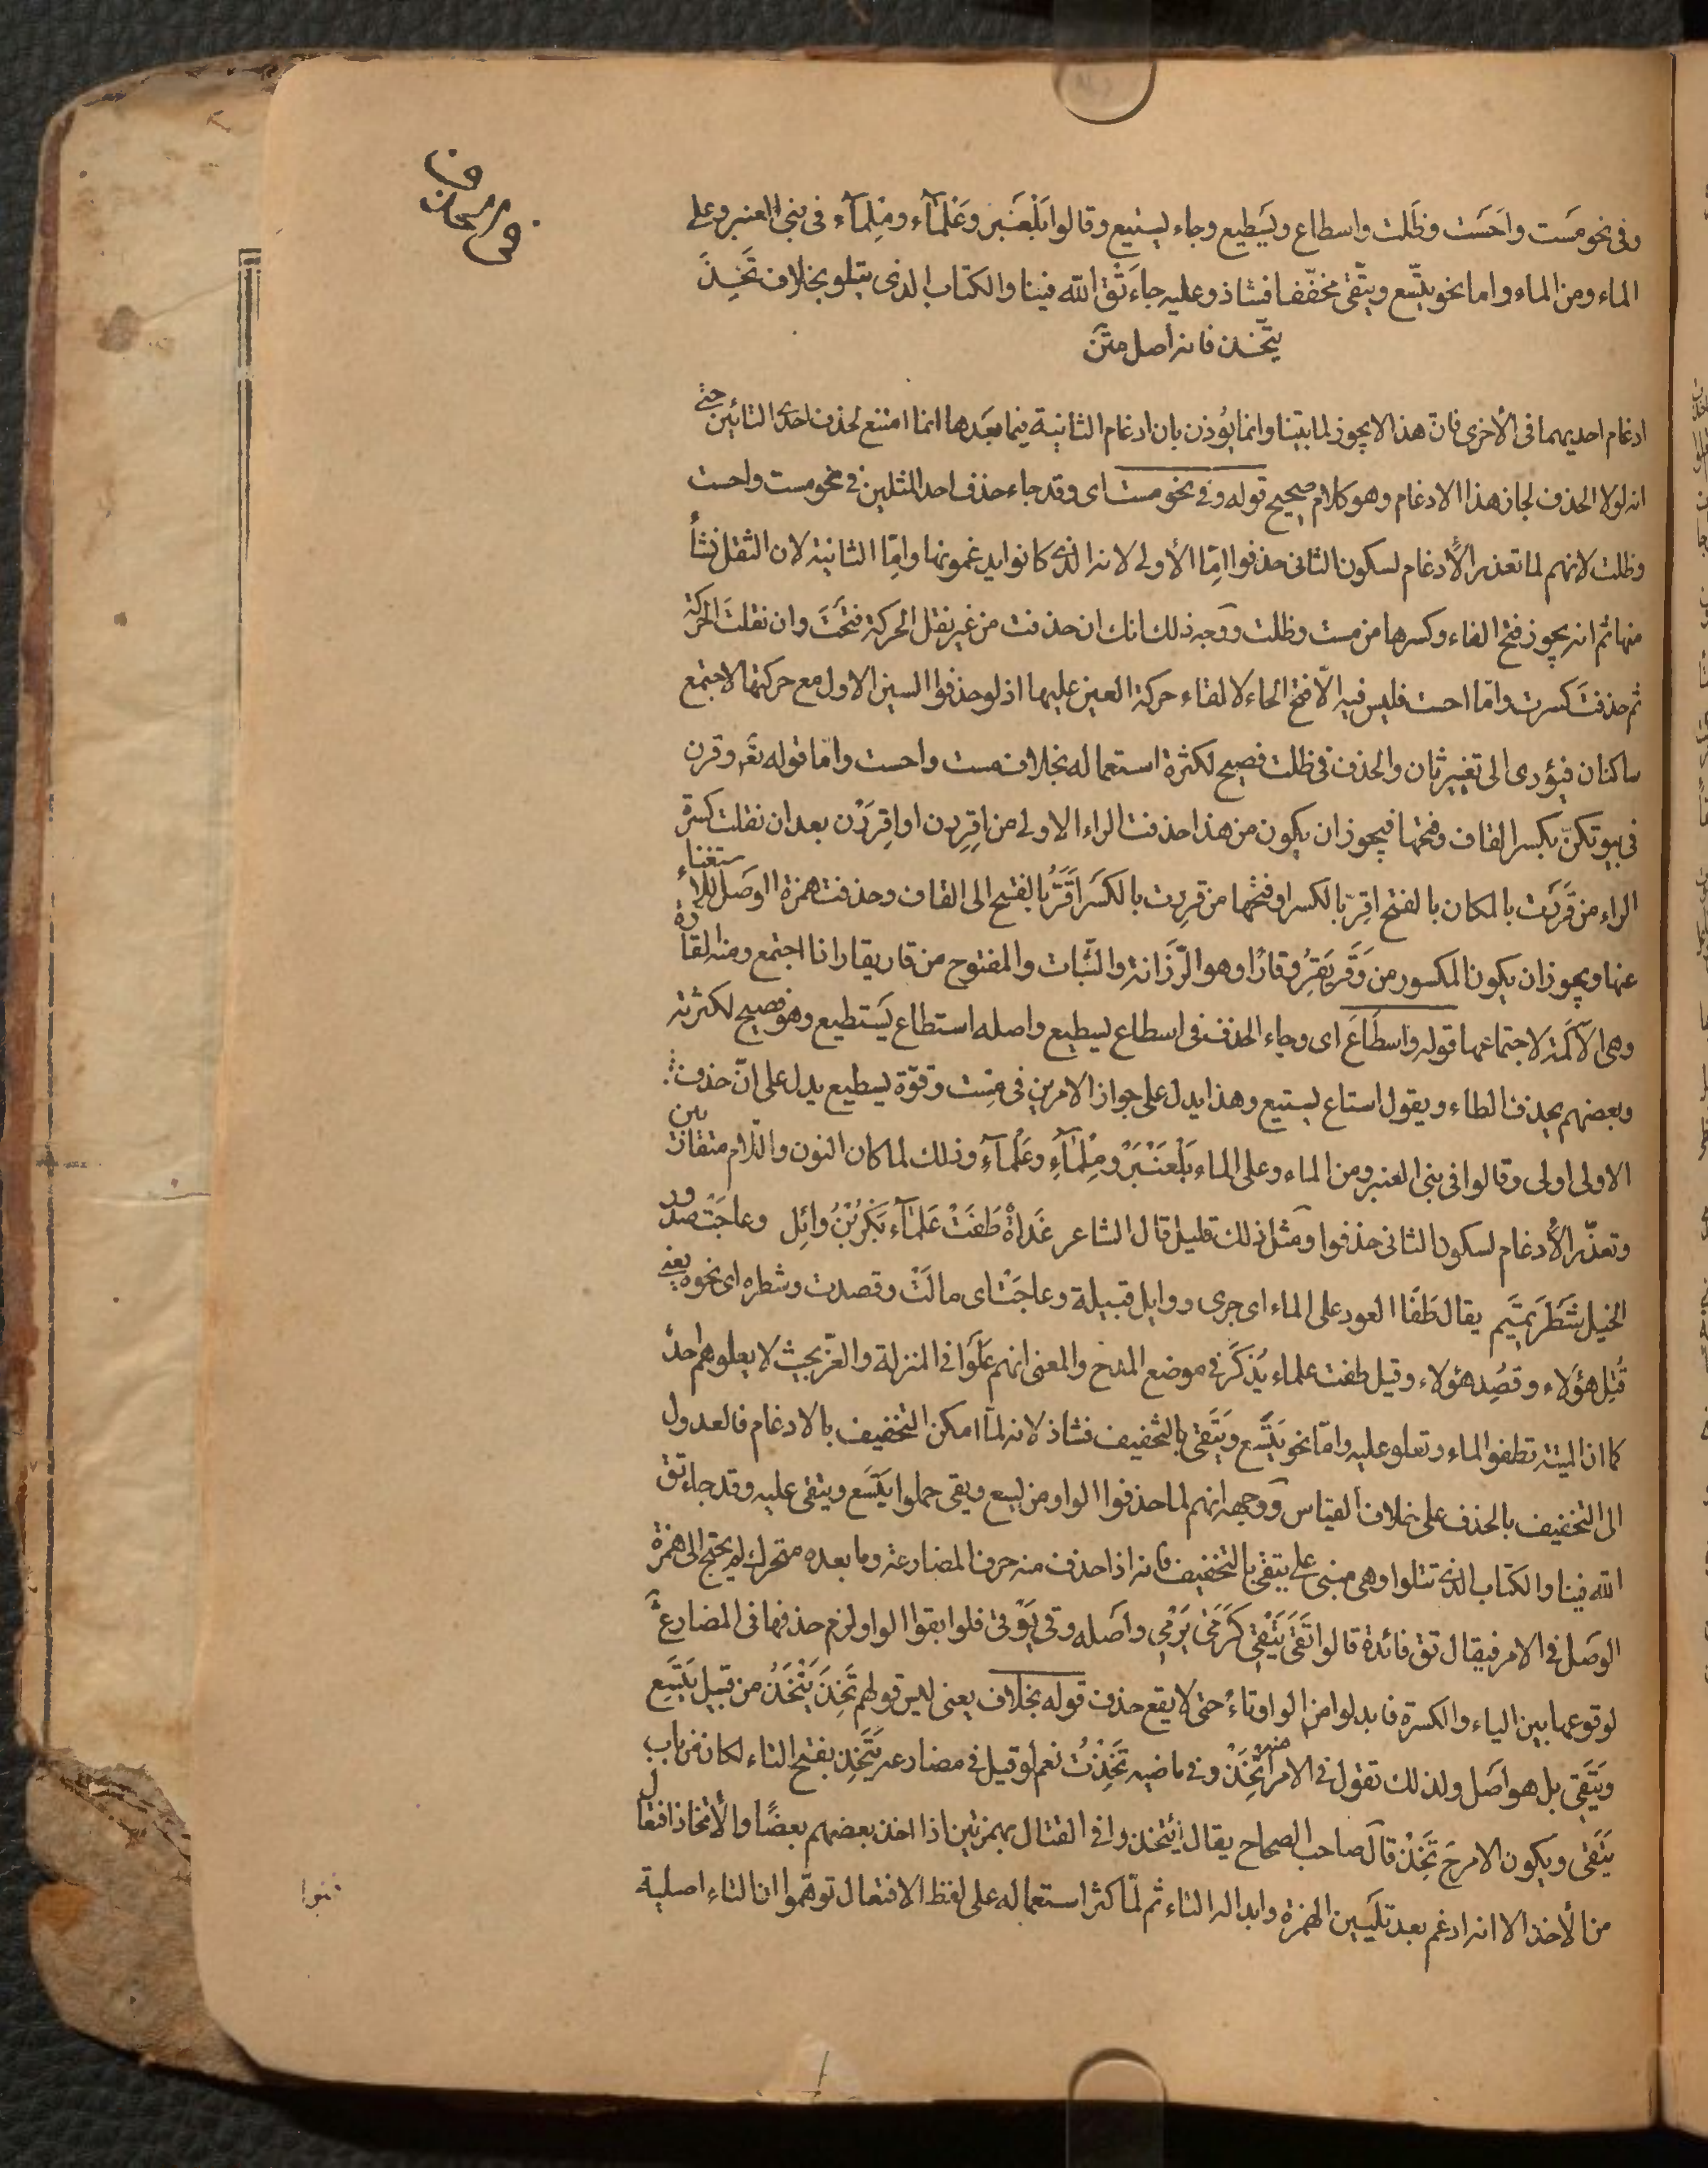 وفى نحو مَست واَحَسَت وظَلت واسطاع ويَسِطيع وجاء يستيع وقالوا بَلْعَنَبر وعَلْمآء ومِلمآء فى بنى العنبر وعلى
الماء ومن الماء واما نحو يتّسع ويتّقى مخفّفا فشاذ وعليه جاء تَقِ الله فينا والكتاب الذى يتلو بخلاف تَخِذَ
يتّخذ فانه اصل متن
ادغام احديهما فى الأخرى فان هذا لا يجوز لما بيّنا وانما يُؤذن بان ادغام الثانية فيما بعَدها انما امتنع لحذف احدى التائين حتى
انه لولا الحذف لجاز هذا الادغام وهو كلام صحيح قوله وفى نحو مست اى وقد جاء حذف احد المثلين فى نحو مست واحست
وظلت لانهم لما تعذر الأدغام لسكون الثانى حذفوا امّا الأولى لانه الذى كانوا يدغمونها وامّا الثانية لان الثقل نشأ
منها ثم انه يجوز فتح الفاء وكسرها من مست وظلت ووجه ذلك انك ان حذفت من غير نقل الحركة فتحت وان نقلت الحركة
ثم حذفت كسرت وامّا احست فليس فيه الّا فتح الحاء لالقاء حركة العين عليها اذ لو حذفوا السين الاول مع حركتها لاجتمع
ساكنان فيؤدى الى تغيير ثان والحذف فى ظلت فصيح لكثرة استعماله بخلاف مست واحست وامّا قوله تعٓ وقرن
فى بيوتكنّ بكسر القاف وفتحها فيجوز ان يكون من هذا حذفت الراء الاولى من اِقِرِرن او اقِررَن بعد ان نقلت كسرة
الراء من قَرَرت بالمكان بالفتح اقِرّ بالكسر او فتحها من قرِرت بالكسَر اَقَرّ بالفتح الى القاف وحذفت همزة الوصل للاستغناء
عنها ويجوز ان يكون المكسور من وَقَر يَقِرُ وقارًا وهو الرّزانة والثّبات والمفتوح من قار يقار اذا اجتمع ومنه القارة
وهى الأكمة لاجتماعها قوله واسطَاعَ اى وجاء الحذف فى اسطاع يسطيع واصله استطاع يَستطيع وهو فصيح لكثرته
وبعضهم يحذف الطاء ويقول استاع يستيع وهذا يدل على جواز الامرين فى مِست وقوّة يسطيع يدل على انّ حذف
الاولى اولى وقالوا فى بنى العنبر ومن الماء وعلى الماء بَلْعَنْبَرْ ومِلْمآءِ وعَلْمآءِ وذلك لما كان النون واللّام متقاربين
وتعذّر الأدغام لسكون الثانى حذفوا ومثل ذلك قليل قال الشاعر غَداةَ طَفَتْ عَلمآء بَكرُ بْنُ وائِل وعاجَتْ صدور
الخيل شَطْرَ تميَّم يقال طَفَا العود على الماء اى جرى ووايل قبيلة وعاجَتْ اى مالَتْ وقصدت وشطره اى نحوه يعنى
قُتِل هؤلاء وقصُِد هؤلاء وقيل طفت علماء يُذكَر فى موضع المدح والمعنى انهم عَلَوا فى المنزلة والعزّ بحيث لا يعلوهم احدٌ
كما ان الميتة تطفو الماء وتعلو عليه وامّا نحو يتَّسع ويَتَقى بالتخفيف فشاذ لانه لمّا امكن التخفيف بالادغام فالعدول
الى التخفيف بالحذف على خلاف القياس ووجهه انهم لما حذفوا الواو من يسع ويقى حملوا يَتّسَع ويتقى عليه وقد جاء تق
الله فينا والكتاب الذى تتلوا وهى مبنى على يتقى بالتخفيف فانه اذا حذف منه حرف المضارعة وما بعده متحرك لم يحتج الى همزة
الوصَل فى الامر فيقال تق فائدة قالوا تَقَى يَتْقِى كَرَمَى يَرْمِى واصَله وقى يَوْقى فلو ابقوا الواو لزم حذفها فى المضارع
لوقوعها بين الياء والكسرة فابدلوا من الواو تاءً حتى لا يقع حذف قوله بخلاف يعنى ليس قولهم تَخِذَ يَتْخَذُ من قبيل يَتَسِع
ويَتَقِى بل هو اصَل ولذلك تقول فى الامر منه اتْخَذْ وفى ماضيه تَخِذْتُ نعم لو قيل فى مضارعه يَتَخِذ بفتح التاء لكان من باب
يَتَقى ويكون الامرحَ تَخِذْ قال صاحب الصحاح يقال ائتخذوا فى القتال بهمزتين اذا اخذ بعضهم بعضًا والأتخاذ افتعال
من الأخذ الا انه ادغم بعد تَليَين الهمزة وابداله التاء ثم لمّا كثر استعماله على لفظ الافتعال توهّموا ان التاء اصلية
فبنوا